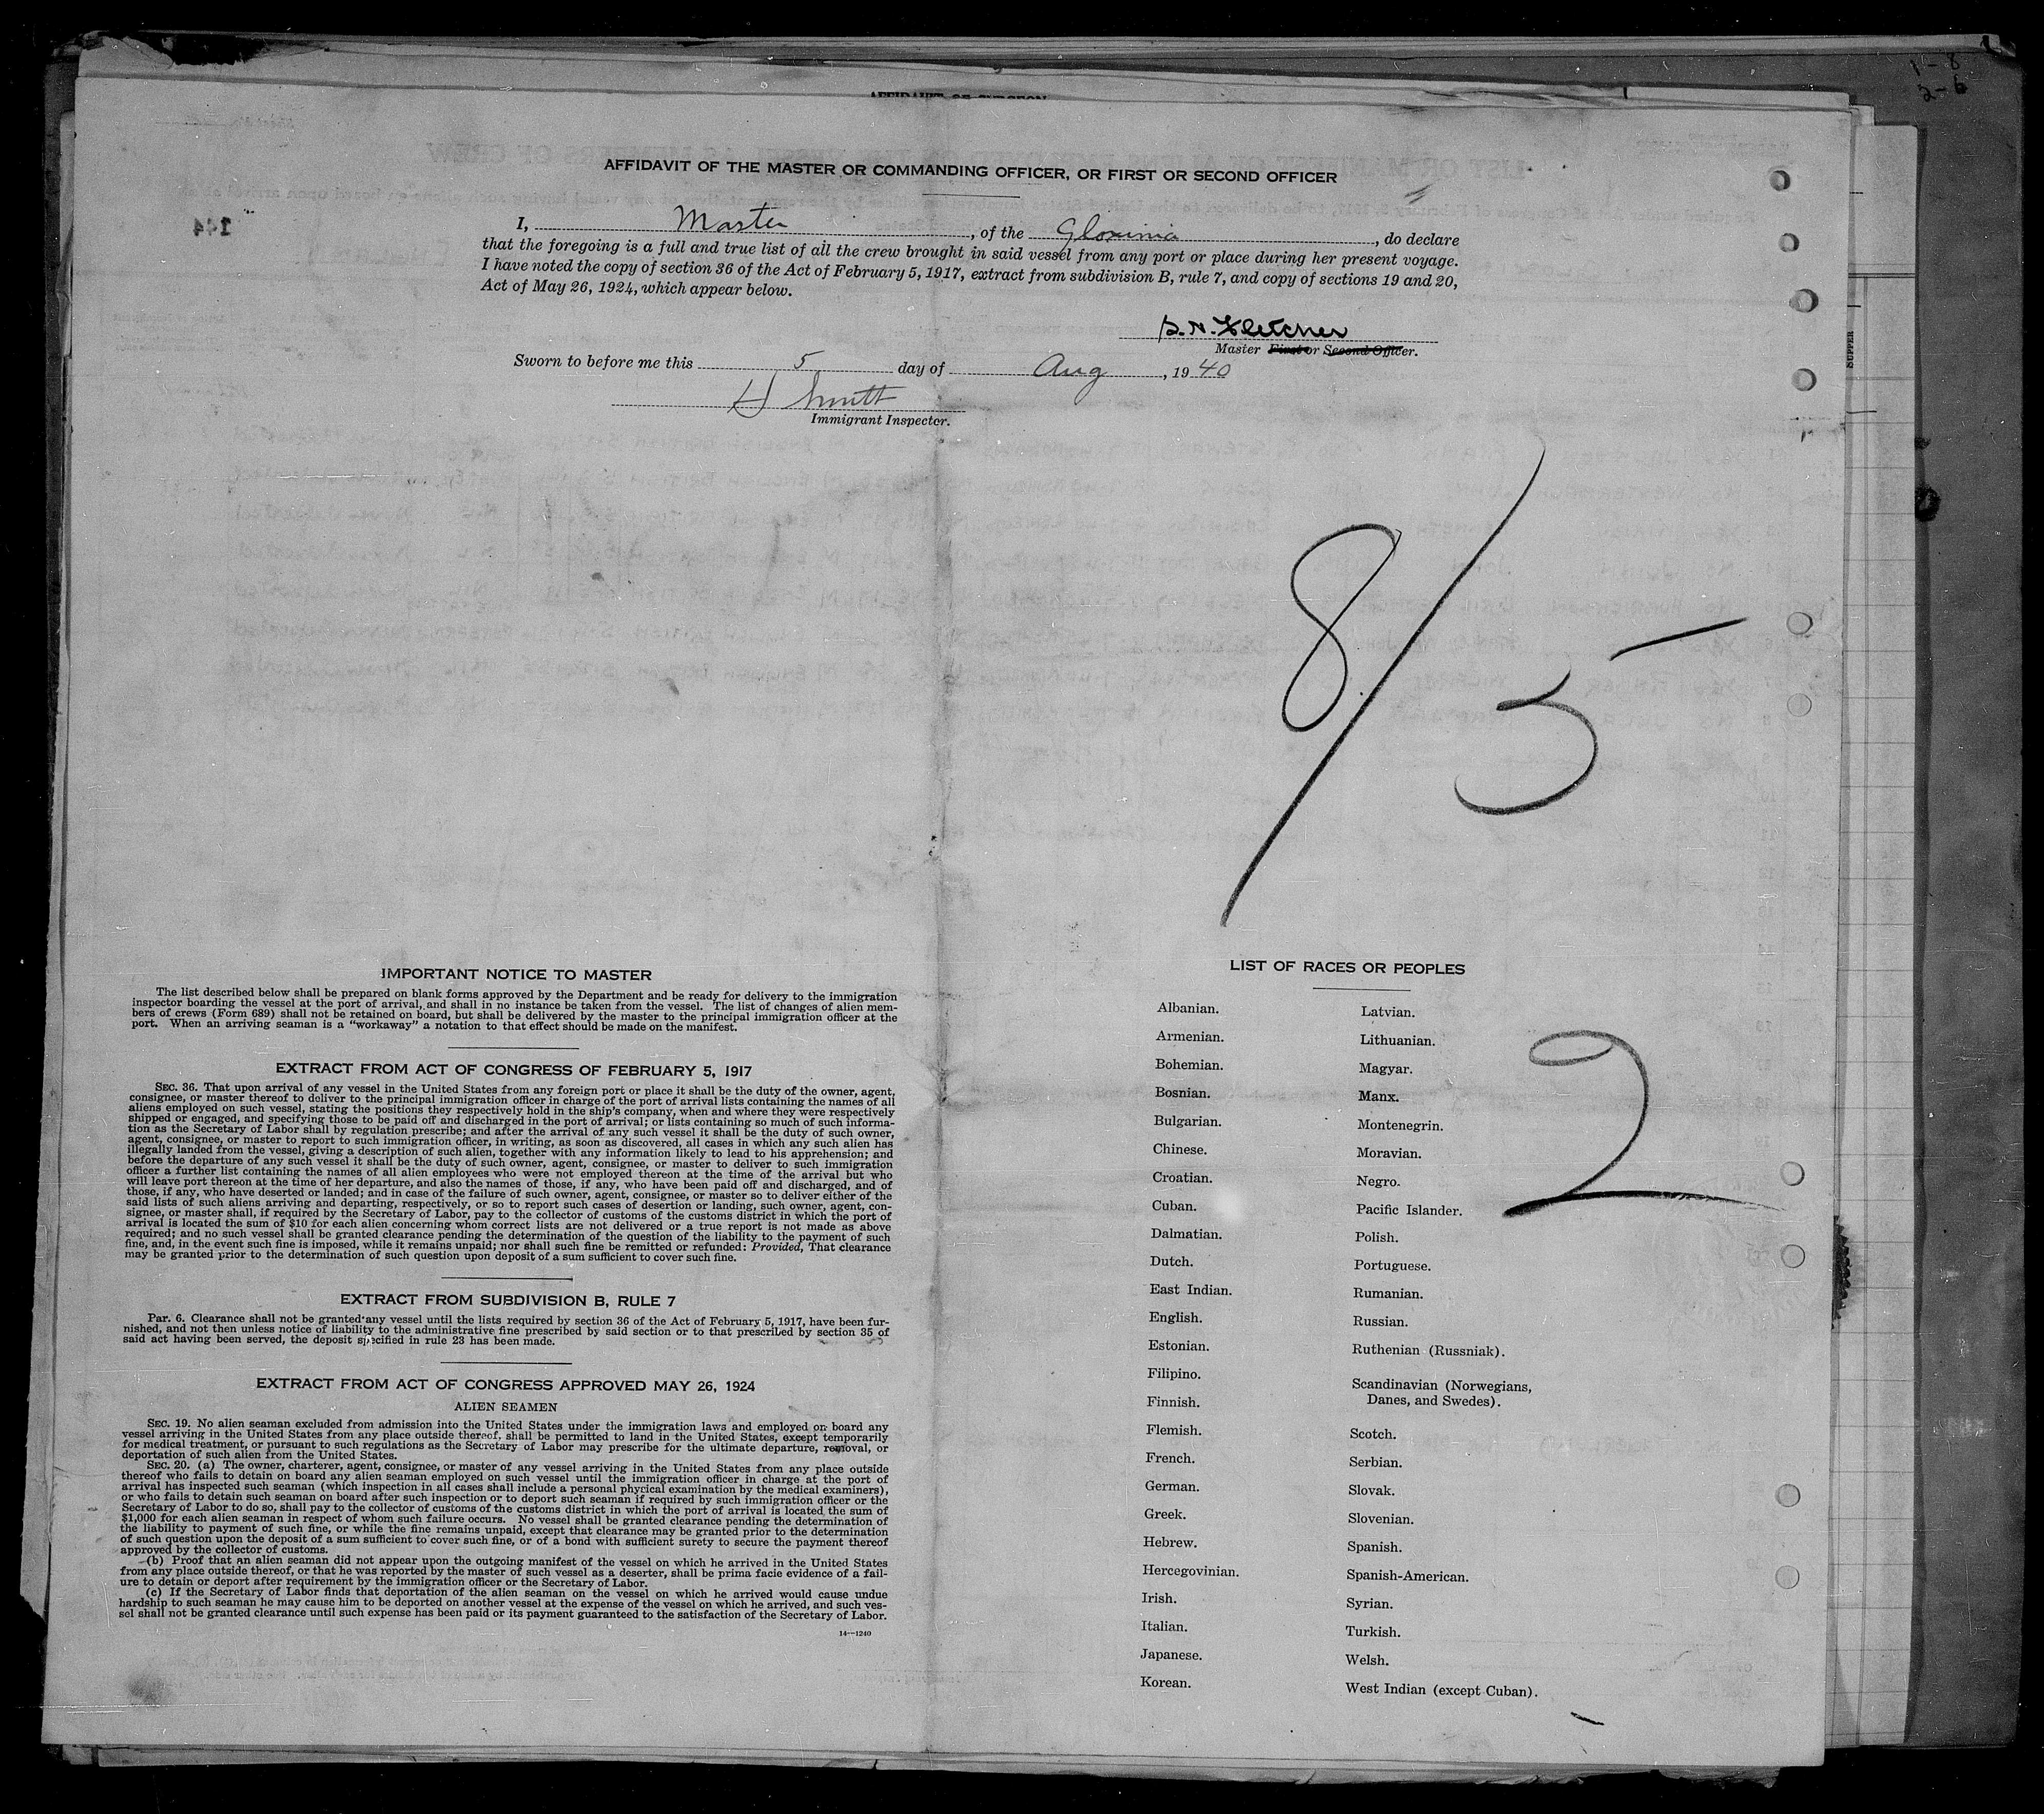 1-8
2-6
AFFIDAVIT OF SURGEON
AFFIDAVIT OF THE MASTER OR COMMANDING OFFICER, OR FIRST OR SECOND OFFICER
144
I, Master, of the Gloxinia, do declare
that the foregoing is a full and true list of all the crew brought in said vessel from any port or place during her present voyage.
I have noted the copy of section 36 of the Act of February 5, 1917, extract from subdivision B, rule 7, and copy of sections 19 and 20,
Act of May 26, 1924, which appear below.
Fletcher
Master First or Second Officer.
Sworn to before me this 5 day of Aug, 1940
H Smitt
Immigrant Inspector.
SUPPER
8/5
IMPORTANT NOTICE TO MASTER
The list described below shall be prepared on blank forms approved by the Department and be ready for delivery to the immigration
inspector boarding the vessel at the port of arrival, and shall in no instance be taken from the vessel. The list of changes of alien mem-
bers of crews (Form 689) shall not be retained on board, but shall be delivered by the master to the principal immigration officer at the
port. When an arriving seaman is a "workaway" a notation to that effect should be made on the manifest.
EXTRACT FROM ACT OF CONGRESS OF FEBRUARY 5, 1917
SEC. 36. That upon arrival of any vessel in the United States from any foreign port or place it shall be the duty of the owner, agent,
consignee, or master thereof to deliver to the principal immigration officer in charge of the port of arrival lists containing the names of all
aliens employed on such vessel, stating the positions they respectively hold in the ship's company, when and where they were respectively
shipped or engaged, and specifying those to be paid off and discharged in the port of arrival; or lists containing so much of such informa-
tion as the Secretary of Labor shall by regulation prescribe; and after the arrival of any such vessel it shall be the duty of such owner,
agent, consignee, or master to report to such immigration officer, in writing, as soon as discovered, all cases in which any such alien has
illegally landed from the vessel, giving a description of such alien, together with any information likely to lead to his apprehension; and
before the departure of any such vessel it shall be the duty of such owner, agent, consignee, or master to deliver to such immigration
officer a further list containing the names of all alien employees who were not employed thereon at the time of the arrival but who
will leave port thereon at the time of her departure, and also the names of those, if any, who have been paid off and discharged, and of
those, if any, who have deserted or landed; and in case of the failure of such owner, agent, consignee, or master so to deliver either of the
said lists of such aliens arriving and departing, respectively, or so to report such cases of desertion or landing, such owner, agent, con-
signee, or master shall, if required by the Secretary of Labor, pay to the collector of customs of the customs district in which the port of
arrival is located the sum of $10 for each alien concerning whom correct lists are not delivered or a true report is not made as above
required; and no such vessel shall be granted clearance pending the determination of the question of the liability to the payment of such
fine, and, in the event such fine is imposed, while it remains unpaid; nor shall such fine be remitted or refunded: Provided, That clearance
may be granted prior to the determination of such question upon deposit of a sum sufficient to cover such fine.
EXTRACT FROM SUBDIVISION B, RULE 7
Par. 6. Clearance shall not be granted any vessel until the lists required by section 36 of the Act of February 5, 1917, have been fur-
nished, and not then unless notice of liability to the administrative fine prescribed by said section or to that prescribed by section 35 of
said act having been served, the deposit specified in rule 23 has been made.
EXTRACT FROM ACT OF CONGRESS APPROVED MAY 26, 1924
ALIEN SEAMEN
SEC. 19. No alien seaman excluded from admission into the United States under the immigration laws and employed on board any
vessel arriving in the United States from any place outside thereof, shall be permitted to land in the United States, except temporarily
for medical treatment, or pursuant to such regulations as the Secretary of Labor may prescribe for the ultimate departure, removal, or
deportation of such alien from the United States.
SEC. 20. (a) The owner, charterer, agent, consignee, or master of any vessel arriving in the United States from any place outside
thereof who fails to detain on board any alien seaman employed on such vessel until the immigration officer in charge at the port of
arrival has inspected such seaman (which inspection in all cases shall include a personal physical examination by the medical examiners),
or who fails to detain such seaman on board after such inspection or to deport such seaman if required by such immigration officer or the
Secretary of Labor to do so, shall pay to the collector of customs of the customs district in which the port of arrival is located the sum of
$1,000 for each alien seaman in respect of whom such failure occurs. No vessel shall be granted clearance pending the determination of
the liability to payment of such fine, or while the fine remains unpaid, except that clearance may be granted prior to the determination
of such question upon the deposit of a sum sufficient to cover such fine, or of a bond with sufficient surety to secure the payment thereof
approved by the collector of customs.
(b) Proof that an alien seaman did not appear upon the outgoing manifest of the vessel on which he arrived in the United States
from any place outside thereof, or that he was reported by the master of such vessel as a deserter, shall be prima facie evidence of a fail-
ure to detain or deport after requirement by the immigration officer or the Secretary of Labor.
(c) If the Secretary of Labor finds that deportation of the alien seaman on the vessel on which he arrived would cause undue
hardship to such seaman he may cause him to be deported on another vessel at the expense of the vessel on which he arrived, and such ves-
sel shall not be granted clearance until such expense has been paid or its payment guaranteed to the satisfaction of the Secretary of Labor.
14-1240
LIST OF RACES OR PEOPLES
Albanian.
Armenian.
Bohemian.
Bosnian.
Bulgarian.
Chinese.
Croatian.
Cuban.
Dalmatian.
Dutch.
East Indian.
English.
Estonian.
Filipino.
Finnish.
Flemish.
French.
German.
Greek.
Hebrew.
Hercegovinian.
Irish.
Italian.
Japanese.
Korean.
Latvian.
Lithuanian.
Magyar.
Manx.
Montenegrin.
Moravian.
Negro.
Pacific Islander.
Polish.
Portuguese.
Rumanian.
Russian.
Ruthenian (Russniak).
Scandinavian (Norwegians,
Danes, and Swedes).
Scotch.
Serbian.
Slovak.
Slovenian.
Spanish.
Spanish-American.
Syrian.
Turkish.
Welsh.
West Indian (except Cuban).
2